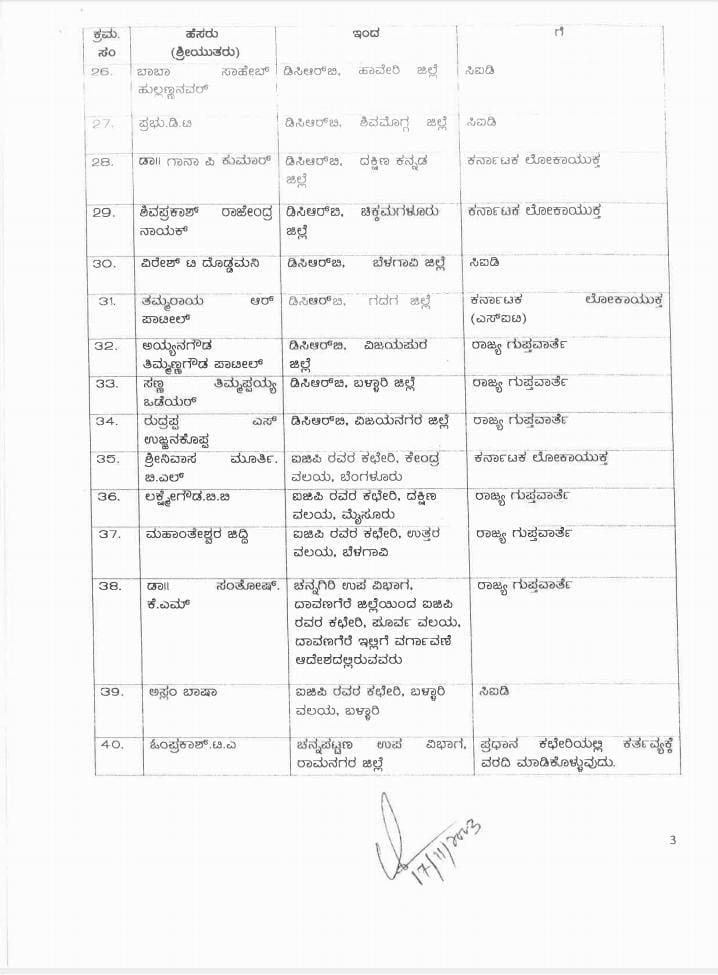 ಕ್ರಮ. ಹೆಸರು ಇಂದ ಗೆ
ಸಂ (ಶ್ರೀಯುತರು)
26. ಬಾಬಾ ಸಾಹೇಬ್ ಡಿಸಿಆರ್‌ಬಿ, ಹಾವೇರಿ ಜಿಲ್ಲೆ ಸಿಐಡಿ
ಹುಲ್ಲಣ್ಣನವರ್
27. ಪ್ರಭು.ಡಿ.ಟಿ ಡಿಸಿಆರ್‌ಬಿ, ಶಿವಮೊಗ್ಗ ಜಿಲ್ಲೆ ಸಿಐಡಿ
28. ಡಾ॥ ಗಾನಾ ಪಿ ಕುಮಾರ್ ಡಿಸಿಆರ್‌ಬಿ, ದಕ್ಷಿಣ ಕನ್ನಡ ಕರ್ನಾಟಕ ಲೋಕಾಯುಕ್ತ
ಜಿಲ್ಲೆ
29. ಶಿವಪ್ರಕಾಶ್ ರಾಜೇಂದ್ರ ಡಿಸಿಆರ್‌ಬಿ, ಚಿಕ್ಕಮಗಳೂರು ಕರ್ನಾಟಕ ಲೋಕಾಯುಕ್ತ
ನಾಯಕ್ ಜಿಲ್ಲೆ
30. ವಿರೇಶ್ ಟಿ ದೊಡ್ಡಮನಿ ಡಿಸಿಆರ್‌ಬಿ, ಬೆಳಗಾವಿ ಜಿಲ್ಲೆ ಸಿಐಡಿ
31. ತಮ್ಮರಾಯ ಆರ್ ಡಿಸಿಆರ್‌ಬಿ, ಗದಗ ಜಿಲ್ಲೆ ಕರ್ನಾಟಕ ಲೋಕಾಯುಕ್ತ
ಪಾಟೀಲ್ (ಎಸ್‌ಐಟಿ)
32. ಅಯ್ಯನಗೌಡ ಡಿಸಿಆರ್‌ಬಿ, ವಿಜಯಪುರ ರಾಜ್ಯ ಗುಪ್ತವಾರ್ತೆ
ತಿಮ್ಮಣ್ಣಗೌಡ ಪಾಟೀಲ್ ಜಿಲ್ಲೆ
33. ಸಣ್ಣ ತಿಮ್ಮಪ್ಪಯ್ಯ ಡಿಸಿಆರ್‌ಬಿ, ಬಳ್ಳಾರಿ ಜಿಲ್ಲೆ ರಾಜ್ಯ ಗುಪ್ತವಾರ್ತೆ
ಒಡೆಯರ್
34. ರುದ್ರಪ್ಪ ಎಸ್ ಡಿಸಿಆರ್‌ಬಿ, ವಿಜಯನಗರ ಜಿಲ್ಲೆ ರಾಜ್ಯ ಗುಪ್ತವಾರ್ತೆ
ಉಜ್ಜನಕೊಪ್ಪ
35. ಶ್ರೀನಿವಾಸ ಮೂರ್ತಿ. ಐಜಿಪಿ ರವರ ಕಛೇರಿ, ಕೇಂದ್ರ ಕರ್ನಾಟಕ ಲೋಕಾಯುಕ್ತ
ಬಿ.ಎಲ್ ವಲಯ, ಬೆಂಗಳೂರು
36. ಲಕ್ಷ್ಮೇಗೌಡ.ಬಿ.ಬಿ ಐಜಿಪಿ ರವರ ಕಛೇರಿ, ದಕ್ಷಿಣ ರಾಜ್ಯ ಗುಪ್ತವಾರ್ತೆ
ವಲಯ, ಮೈಸೂರು
37. ಮಹಾಂತೇಶ್ವರ ಜಿದ್ದಿ ಐಜಿಪಿ ರವರ ಕಛೇರಿ, ಉತ್ತರ ರಾಜ್ಯ ಗುಪ್ತವಾರ್ತೆ
ವಲಯ, ಬೆಳಗಾವಿ
38. ಡಾ॥ ಸಂತೋಷ್. ಚನ್ನಗಿರಿ ಉಪ ವಿಭಾಗ, ರಾಜ್ಯ ಗುಪ್ತವಾರ್ತೆ
ಕೆ.ಎಮ್ ದಾವಣಗೆರೆ ಜಿಲ್ಲೆಯಿಂದ ಐಜಿಪಿ
ರವರ ಕಛೇರಿ, ಪೂರ್ವ ವಲಯ,
ದಾವಣಗೆರೆ ಇಲ್ಲಿಗೆ ವರ್ಗಾವಣೆ
ಆದೇಶದಲ್ಲಿರುವವರು
39. ಅಸ್ಲಂ ಬಾಷಾ ಐಜಿಪಿ ರವರ ಕಛೇರಿ, ಬಳ್ಳಾರಿ ಸಿಐಡಿ
ವಲಯ, ಬಳ್ಳಾರಿ
40. ಓಂಪ್ರಕಾಶ್.ಟಿ.ಎ ಚನ್ನಪಟ್ಟಣ ಉಪ ವಿಭಾಗ, ಪ್ರಧಾನ ಕಛೇರಿಯಲ್ಲಿ ಕರ್ತವ್ಯಕ್ಕೆ
ರಾಮನಗರ ಜಿಲ್ಲೆ ವರದಿ ಮಾಡಿಕೊಳ್ಳುವುದು.
17/11/2023
3